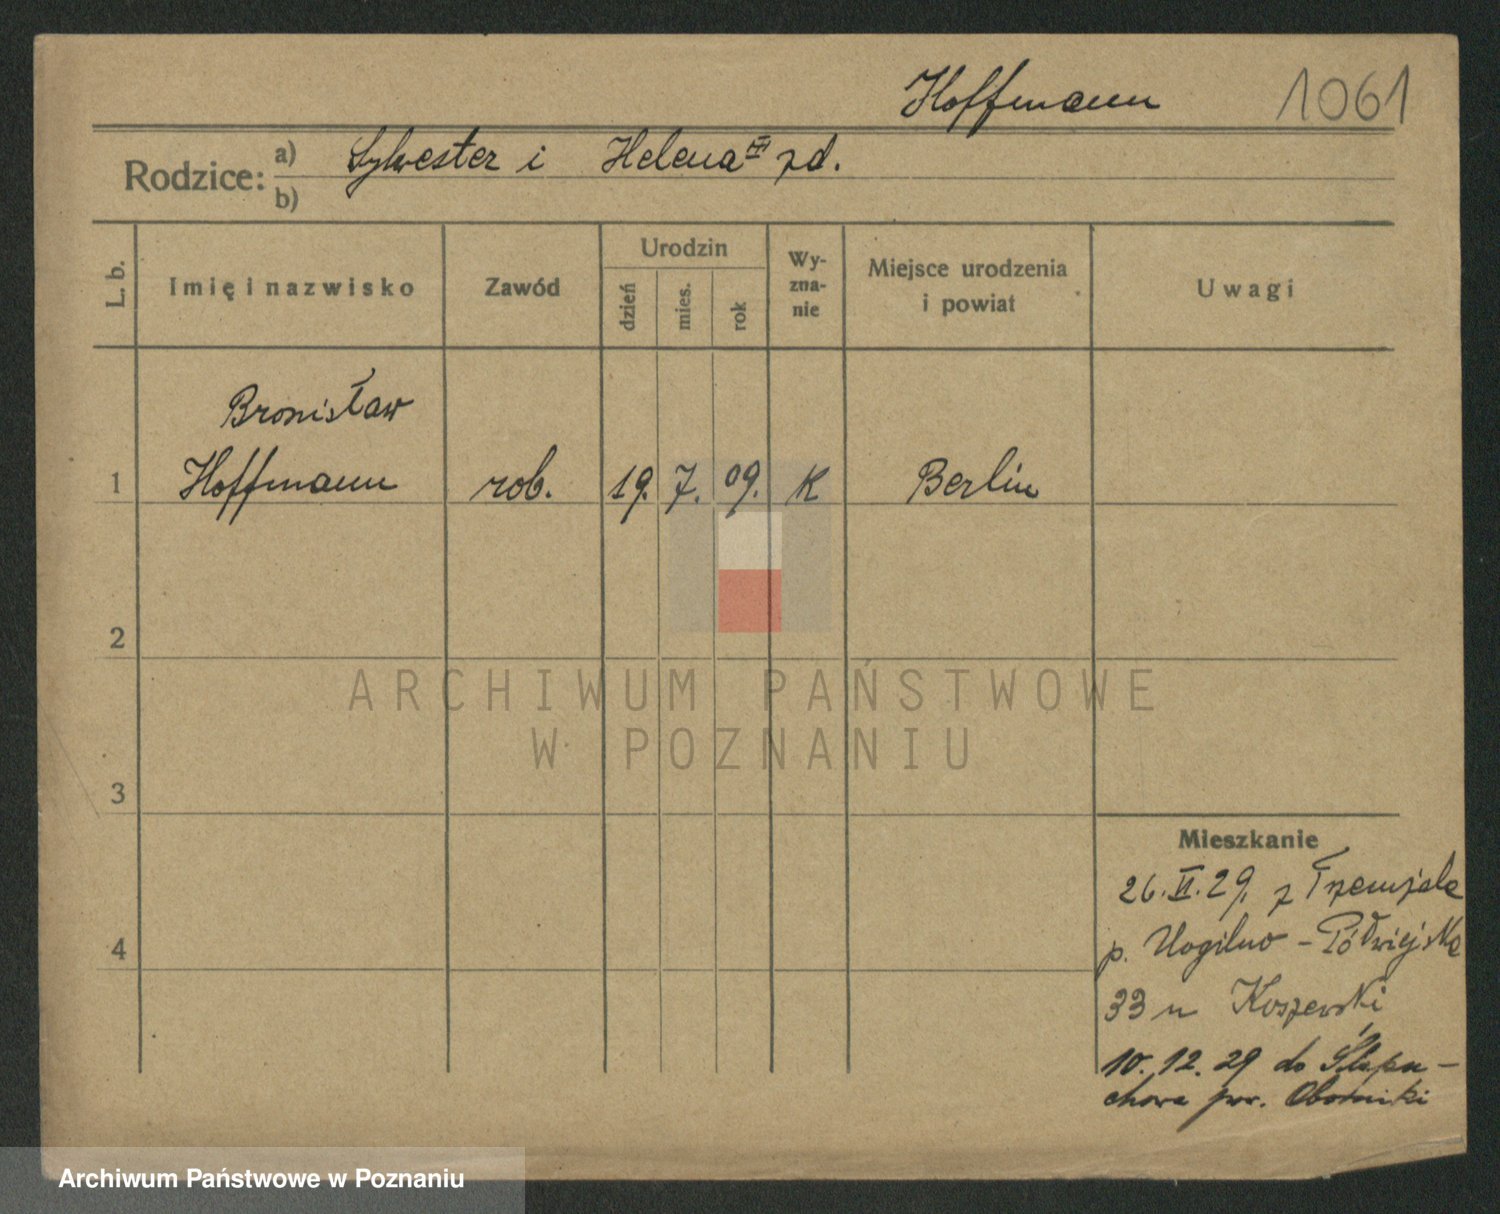 Hoffmann 1061
Rodzice: a) Sylwester i Helena zd.
b)
L. b. Imię i nazwisko Zawód Urodzin dzień mies. rok Wyzna-nie Miejsce urodzenia i powiat Uwagi
Bronisław
1 Hoffmann rob. 19. 7. 09. K Berlin
2
ARCHIWUM PAŃSTWOWE
W POZNANIU
3
Mieszkanie
26.VI.29. z
4 p. Mogilno - Półwiejska
33 u Koszewski
10.12.29 do
pow. Oborniki
Archiwum Państwowe w Poznaniu